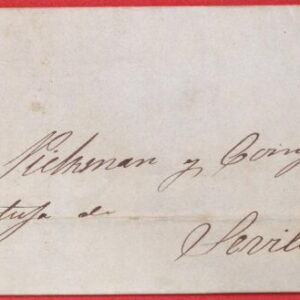 Pickman y Comp
tuja de
Sevill